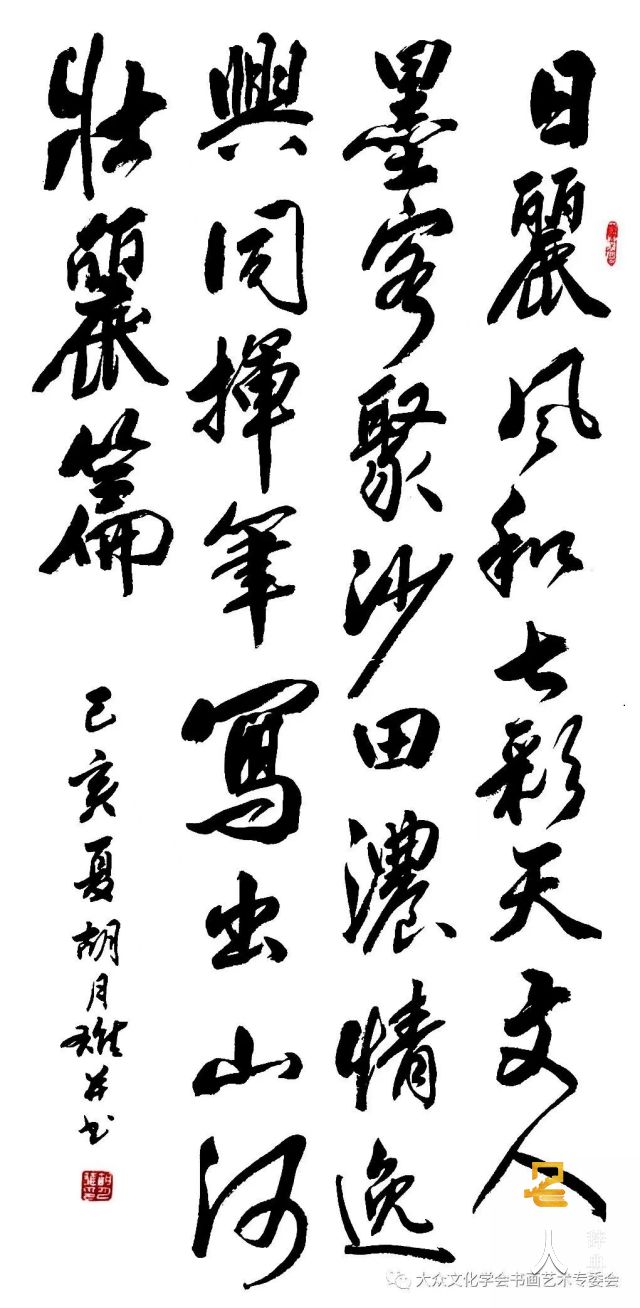 日麗風和七彩天文人
墨客聚沙田濃情逸
興同揮筆寫出山河
壯麗篇
己亥夏胡月 并书
名人
辞典
大众文化学会书画艺术专委会